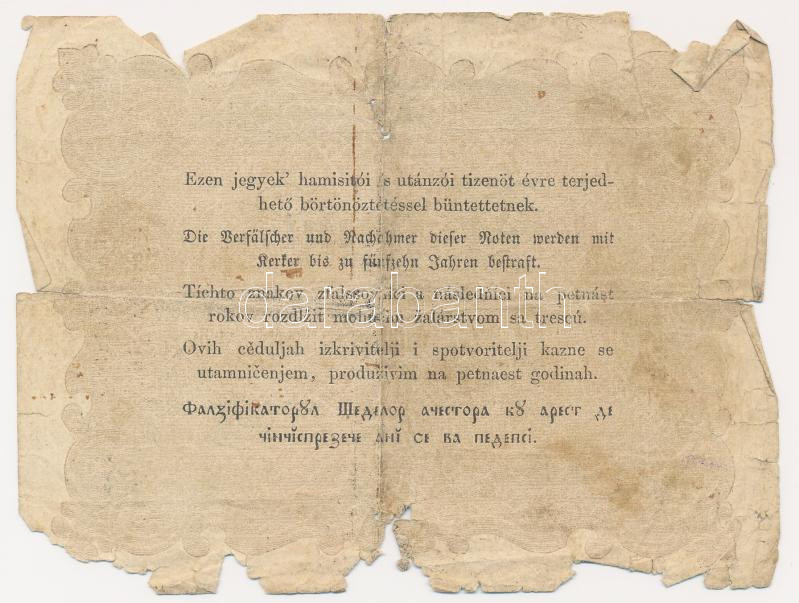 Ezen jegyek’ hamisitói és utánzói tizenöt évre terjed-
hető börtönöztetéssel büntettetnek.
Die Verfälscher und Nachahmer dieser Noten werden mit
Kerker bis zu fünfzehn Jahren bestraft.
Tíchto znakov zfalssovníci a následníci na petnást
rokov rozdlžiť žalárstvom sa trescú.
darabanth
Ovih cěduljah izkrivitelji i spotvoritelji kazne se
utamničenjem, produživim na petnaest godinah.
Фалꙁіфікаторꙋл Шеделор ачестора кꙋ арест де
чінчіспреꙁече анї се ва педепсі.